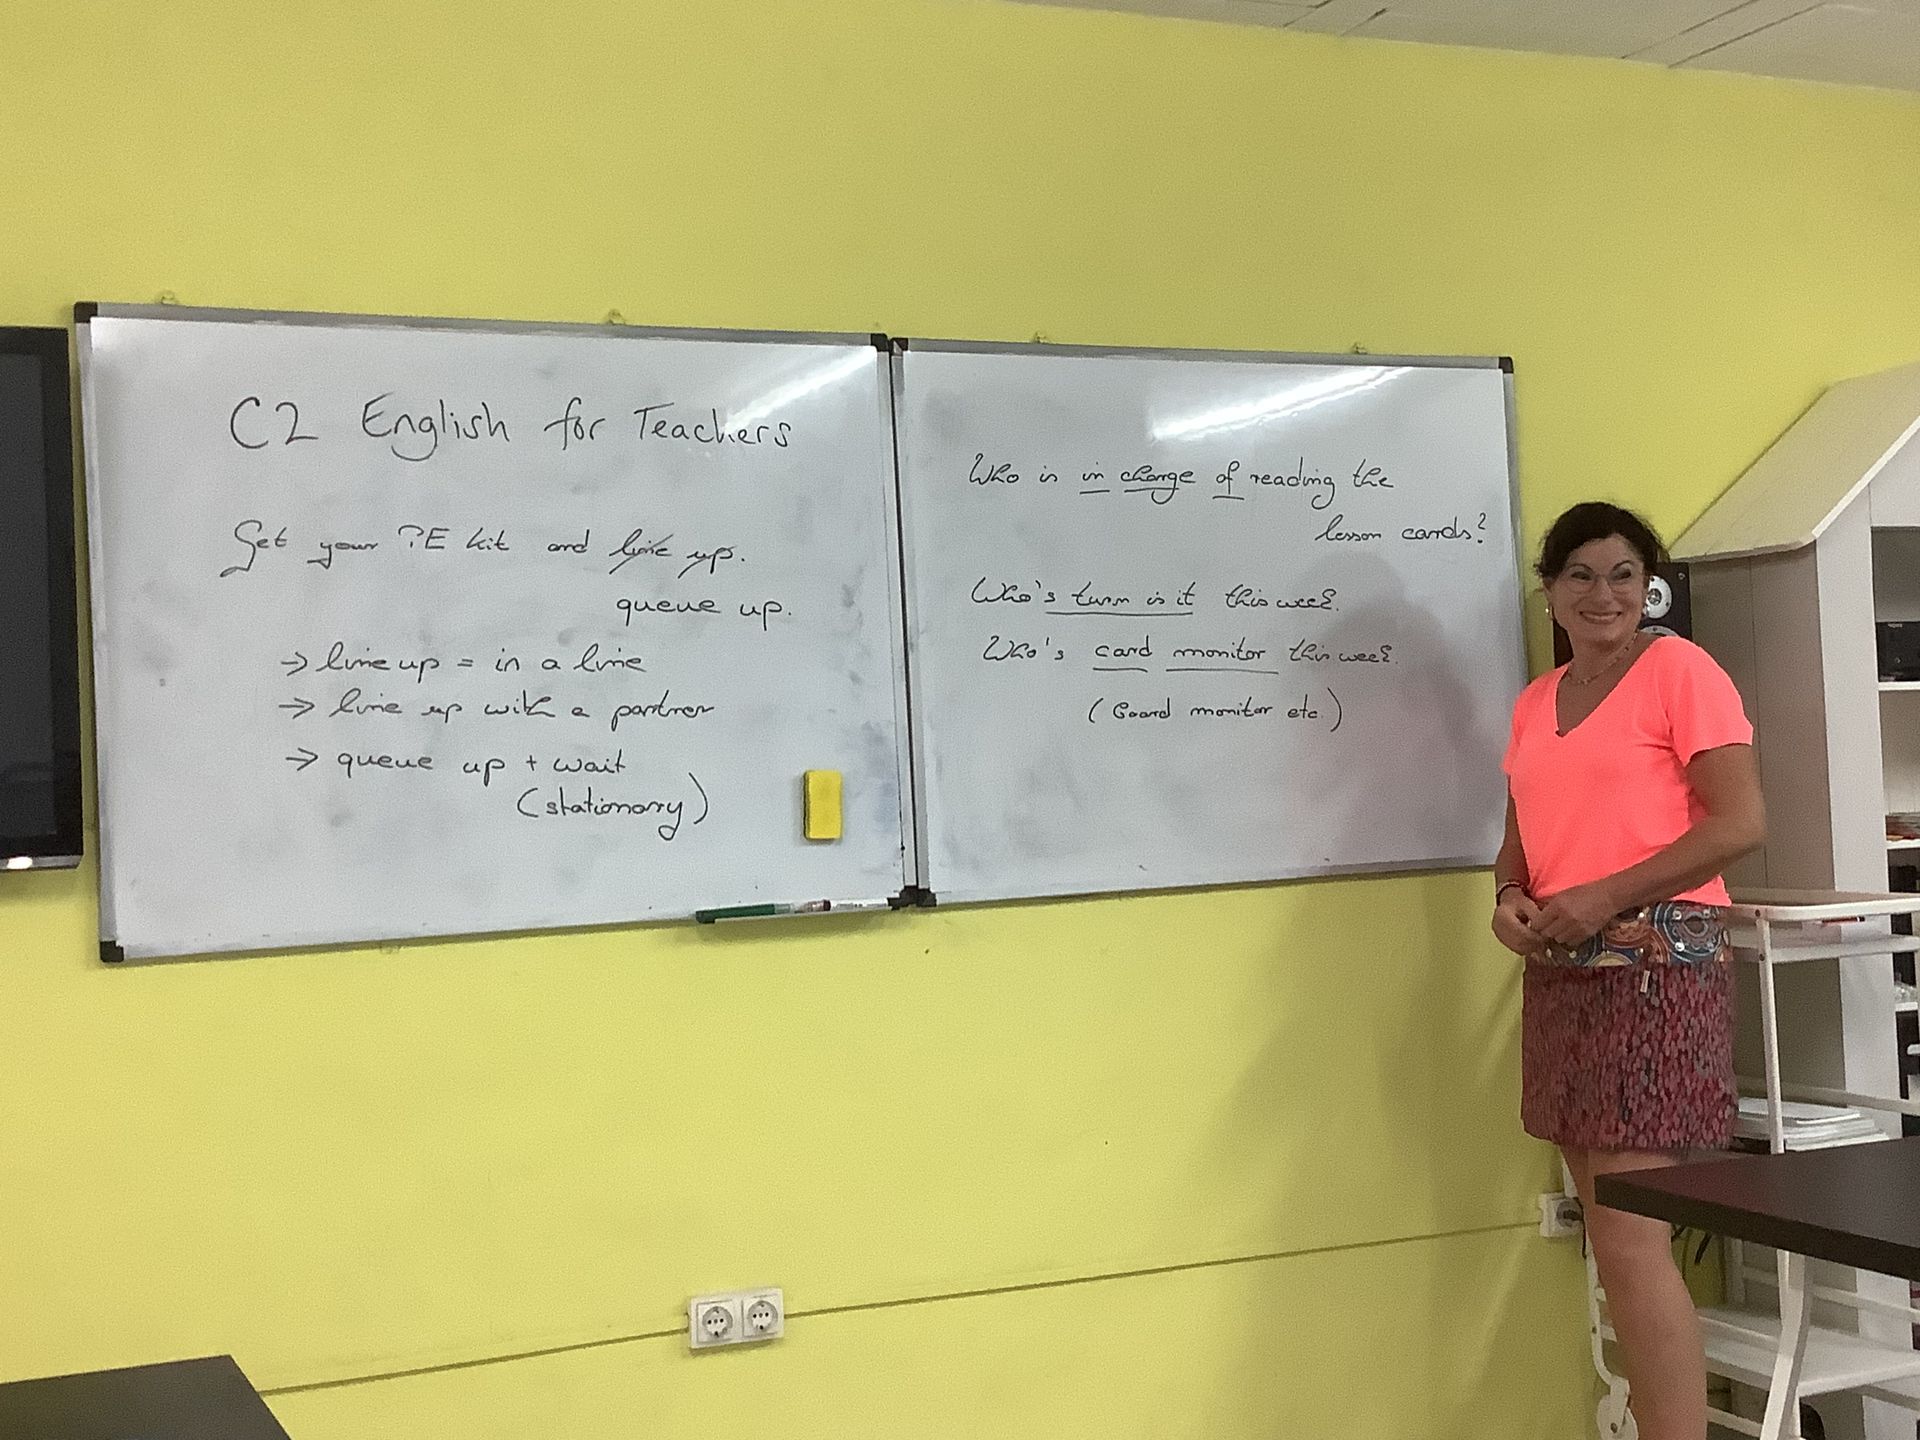 C2 English for Teachers
Get your PE kit and line up.
queue up.
→ line up = in a line
→ line up with a partner
→ queue up + wait
(stationary)
Who is in charge of reading the
lesson cards?
Who's turn is it this week.
Who's card monitor this week.
(Board monitor etc.)